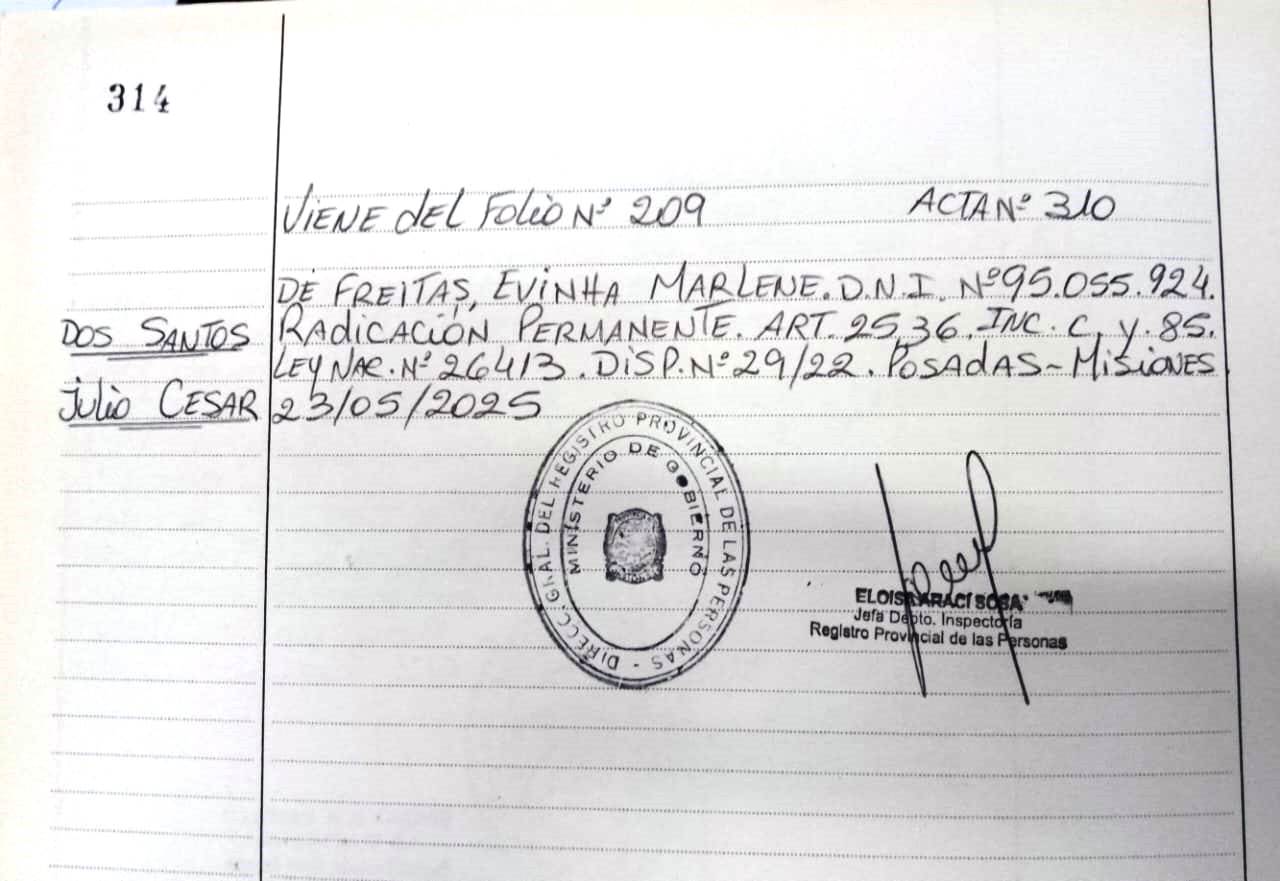 314
VIENE del Folio Nº 209 ACTA Nº 310
DE FREITAS, EVINHA MARLENE. D.N.I. Nº 95.055.924.
DOS SANTOS RADICACIÓN PERMANENTE. ART. 25,36. INC. C, y. 85.
LEY NAC. Nº 26413. DISP. Nº 29/22. POSADAS-MISIONES
Julio CESAR 23/05/2025
DIRECC. GRAL. DEL REGISTRO PROVINCIAL DE LAS PERSONAS -
MINISTERIO DE GOBIERNO
ELOISA ARACÍ SOSA
Jefa Depto. Inspectoría
Registro Provincial de las Personas